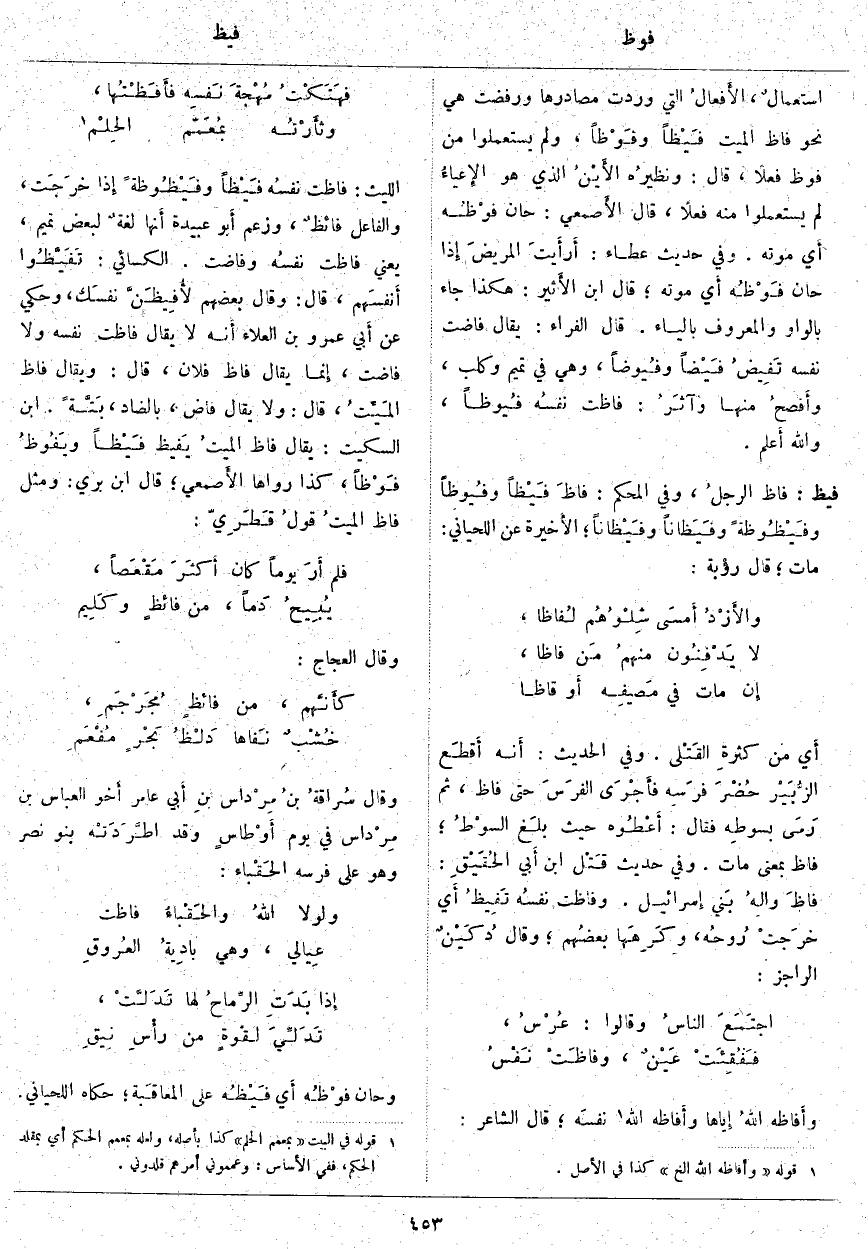 فوظ
فيظ
استعمالٌ، الأَفعالُ التي وردت مصادرها ورفضت هي
نحو فاظ الميت فَيْظاً وفَوْظاً، ولم يستعملوا من
فوظ فعلًا، قال: ونظيرُه الأَيْنُ الذي هو الإِعياءُ
لم يستعملوا منه فعلًا، قال الأَصمعي: حان فوْظُه
أَي موته. وفي حديث عطاء: أَرأَيتَ المريضَ إِذا
حان فَوْظُه أَي موته؛ قال ابن الأَثير: هكذا جاء
بالواو والمعروف بالياء. قال الفراء: يقال فاضت
نفسه تَفِيضُ فَيْضاً وفُيوضاً، وهي في تميم وكلب،
وأَفصحُ منها وآثَرُ: فاظت نفسُه فُيوظاً،
والله أَعلم.
فيظ: فاظ الرجلُ، وفي المحكم: فاظَ فَيْظاً وفُيوظاً
وفَيْظُوظةً وفَيَظاناً وفَيْظاناً؛ الأَخيرة عن اللحياني:
مات؛ قال رؤبة:
والأَزْدُ أَمسَى شِلْوُهُم لُفاظا،
لا يَدْفِنُون منهمُ مَن فاظا،
إِن مات في مَصيفِه أَو قاظا
أَي من كثرةِ القَتْلى. وفي الحديث: أَنه أَقطَع
الزُّبَيْر حُضْرَ فرَسِه فأَجْرَى الفرَسَ حتى فاظ، ثم
رَمَى بسوطِه فقال: أَعْطُوه حيث بلَغ السوْطُ؛
فاظ بمعنى مات. وفي حديث قَتْل ابن أَبي الحُقَيْقِ:
فاظَ والهُ بَني إِسرائيل. وفاظت نفسُه تَفِيظُ أَي
خرجَتْ رُوحُه، وكَرِهَها بعضُهم؛ وقال دُكَيْنٌ
الراجز:
اجتَمَعَ الناسُ وقالوا: عُرْسُ،
فَفُقِئَتْ عَيْنٌ، وفاظَتْ نَفْسُ
وأَفاظه اللهُ إِياها وأَفاظه اللهُ١ نفسَه؛ قال الشاعر:
١ قوله «وأفاظه الله الخ» كذا في الأصل.
فهَتَكْتُ مُهْجةَ نَفسِه فأَفَظْتُها،
وثأَرْتُه بمُعَمَّمِ الحِلْمِ١
الليث: فاظت نفسُه فَيْظاً وفَيْظُوظةً إِذا خرجَت،
والفاعل فائظٌ، وزعم أَبو عبيدة أَنها لغةٌ لبعض تميم،
يعني فاظت نفسُه وفاضت. الكسائي: تَفَيَّظُوا
أَنفسَهم، قال: وقال بعضهم لأُفِيظَنَّ نفسَك، وحكي
عن أَبي عمرو بن العلاء أَنه لا يقال فاظت نفسه ولا
فاضت، إِنما يقال فاظ فلان، قال: ويقال فاظ
المَيّتُ، قال: ولا يقال فاض، بالضاد، بَتَّةً. ابن
السكيت: يقال فاظ الميتُ يَفيظ فَيْظاً ويَفُوظُ
فَوْظاً، كذا رواها الأَصمعي؛ قال ابن بري: ومثل
فاظ الميتُ قولُ قَطَريّ:
فلم أَرَ يوماً كان أَكثَرَ مَقْعَصاً،
يُبِيحُ دَماً، من فائظٍ وكَلِيم
وقال العجاج:
كأَنَّهم، من فائظٍ مُجَرْجَمِ،
خُشْبٌ نَفاها دَلْظُ بَحْرٍ مُفْعَمِ
وقال سُراقةُ بنُ مِرْداس بنِ أَبي عامر أَخو العباس بن
مِرْداس في يوم أَوْطاسٍ وقد اطَّرَدَتْه بنو نصر
وهو على فرسه الحَقْباء:
ولولا اللهُ والحَقْباءُ فاظت
عِيالي، وهي بادِيةُ العُروقِ
إِذا بَدَتِ الرِّماحُ لها تَدَلَّتْ،
تَدَلِّيَ لَقْوةٍ من رأْسِ نِيقِ
وحان فوْظُه أَي فَيْظُه على المعاقَبة؛ حكاه اللحياني.
١ قوله في البيت «بمعمم الحلم» كذا بأصله، ولعله بمعمم الحكم أي بمقلد
الحكم، ففي الأساس: وعمموني أمرهم قلدوني.
٤٥٣